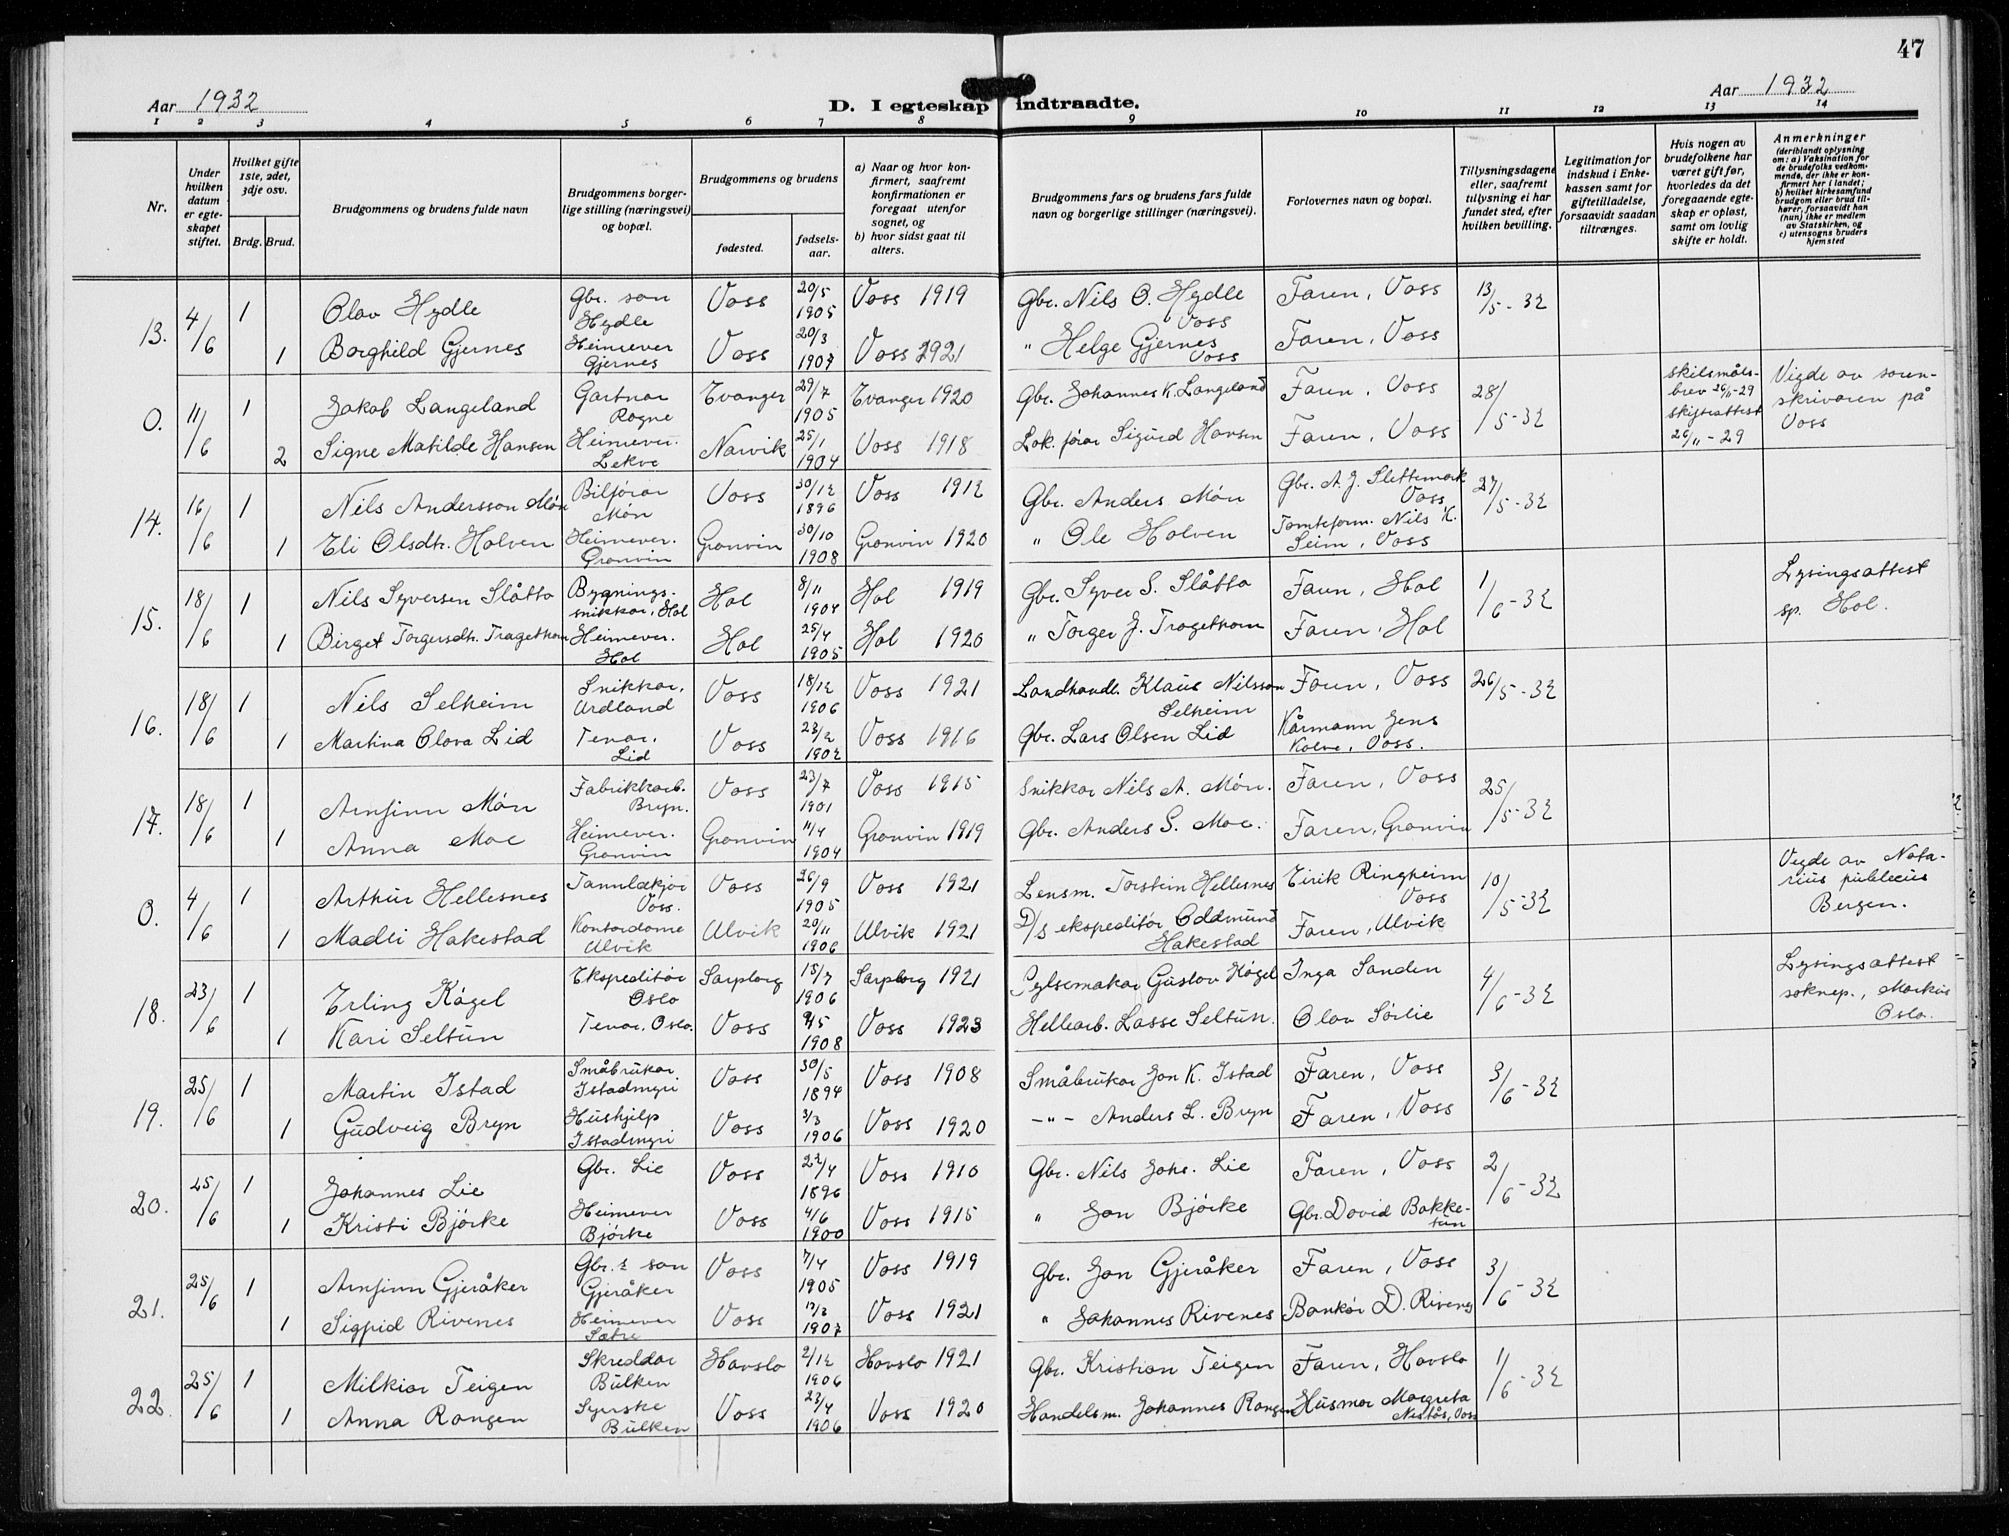 47
Aar 1932
D. I egteskap indtraadte.
Aar 1932
1 2 3 4 5 6 7 8 9 10 11 12 13 14
Nr.
Under hvilken datum er egteskapet stiftet.
Hvilket gifte 1ste, 2det, 3dje osv.
Brdg. Brud.
Brudgommens og brudens fulde navn
Brudgommens borgerlige stilling (næringsvei) og bopæl.
Brudgommens og brudens
fødested.
fødselsaar.
a) Naar og hvor konfirmert, saafremt konfirmationen er foregaat utenfor sognet, og
b) hvor sidst gaat til alters.
Brudgommens fars og brudens fars fulde navn og borgerlige stillinger (næringsvei).
Forlovernes navn og bopæl.
Tillysningsdagene eller, saafremt tillysning ei har fundet sted, efter hvilken bevilling.
Legitimation for indskud i Enkekassen samt for giftetilladelse, forsaavidt saadan tiltrænges.
Hvis nogen av brudefolkene har været gift før, hvorledes da det foregaaende egteskap er opløst, samt om lovlig skifte er holdt.
Anmerkninger
(deriblandt oplysning om: a) Vaksination for de brudefolks vedkommende, der ikke er konfirmert her i landet; b) hvilket kirkesamfund brudgom eller brud tilhører, forsaavidt han (hun) ikke er medlem av Statskirken, og c) utensogns bruders hjemsted
13. 4/6 1 Olav Hydle Gbr. son Hydle Voss 20/5 1905 Voss 1919 Gbr. Nils O. Hydle Voss Faren, Voss 13/5-32
1 Borghild Gjernes Heimever Gjernes Voss 20/3 1907 Voss 2921 " Helge Gjernes Voss Faren, Voss
0. 11/6 1 Jakob Langeland Gartnar Rogne Evanger 29/7 1905 Evanger 1920 Gbr. Johannes K. Langeland Faren, Voss 28/5-32 Skilsmålsbrev 26/11-29 Skifteattest 26/11-29 Vigde av sorenskrivaren på Voss
2 Signe Matilde Hansen Heimever. Lekve Narvik 25/1 1904 Voss 1918 Lok.førar Sigurd Hansen Faren, Voss
14. 16/6 1 Nils Andersson Møn Bilførar Møn Voss 30/12 1896 Voss 1912 Gbr. Anders Møn Gbr. A. J. Slettemark Voss 27/5-32
1 Eli Olsdtr. Holven Heimever. Granvin Granvin 30/10 1908 Granvin 1920 " Ole Holven Tomteform. Nils K. Seim, Voss
15. 18/6 1 Nils Syversen Slåtto Bygningssnikkar, Hol Hol 8/11 1904 Hol 1919 Gbr. Syver S. Slåtto Faren, Hol 1/6-32 Lysingsattest sp. Hol.
1 Birget Torgersdtr. Tragethon Heimever. Hol Hol 25/4 1905 Hol 1920 " Torger J. Tragethom Faren, Hol
16. 18/6 1 Nils Selheim Snikkar, Urdland Voss 18/12 1906 Voss 1921 Landhandl. Klaus Nilsson Selheim Faren, Voss 26/5-32
1 Martina Olava Lid Tenar, Lid Voss 23/2 1902 Voss 1916 Gbr. Lars Olsen Lid Kårmann Jens Kolve, Voss.
17. 18/6 1 Arnfinn Møn Fabrikkarb. Bryn. Voss 23/7 1901 Voss 1915 Snikkar Nils A. Møn. Faren, Voss 25/5-32
1 Anna Moe Heimever. Granvin Granvin 11/4 1904 Granvin 1919 Gbr. Anders S. Moe. Faren, Granvin
0. 4/6 1 Arthur Hellesnes Tannlækjar Voss. Voss 26/9 1905 Voss 1921 Lensm. Torstein Hellesnes Eirik Ringheim Voss 10/5-32 Vigde av Notarius publicus Bergen.
1 Madli Hakestad Kontordame Ulvik Ulvik 20/11 1906 Ulvik 1921 D/s ekspeditør Oddmund Hakestad Faren, Ulvik
18. 23/6 1 Erling Kågel Ekspeditør Oslo Sarpborg 15/7 1906 Sarpborg 1921 Pylsemakar Gustav Kågel Inga Sanden 4/6-32 Lysingsattest soknep., Markus Oslo.
1 Kari Seltun Tenar, Oslo. Voss 1908 Voss 1923 Hellearb. Lasse Seltun. Olav Sørlie
19. 25/6 1 Martin Istad Småbrukar Istadmyri Voss 30/5 1894 Voss 1908 Småbrukar Jon K. Istad Faren, Voss 3/6-32
1 Gudveig Bryn Hushjelp Istadmyri Voss 3/3 1906 Voss 1920 -"- Anders L. Bryn Faren, Voss
20. 25/6 1 Johannes Lie Gbr. Lie Voss 22/4 1896 Voss 1910 Gbr. Nils Johs. Lie Faren, Voss 2/6-32
1 Kristi Bjørke Heimever Bjørke Voss 4/6 1900 Voss 1915 " Jon Bjørke Gbr. David Bakketun
21. 25/6 1 Arnfinn Gjeråker Gbr. son Gjeråker Voss 7/4 1905 Voss 1919 Gbr. Jon Gjeråker Faren, Voss 3/6-32
1 Sigfrid Rivenes Heimever Sætre Voss 17/2 1907 Voss 1921 " Johannes Rivenes Bankør D. Rivenes
22. 25/6 1 Milkior Teigen Skreddar Bulken Havslo 2/12 1906 Havslo 1921 Gbr. Kristian Teigen Faren, Havslo 1/6-32
1 Anna Rongen Syerske Bulken Voss 22/4 1906 Voss 1920 Handelsm. Johannes Rongen Husmor Margreta Nestås, Voss